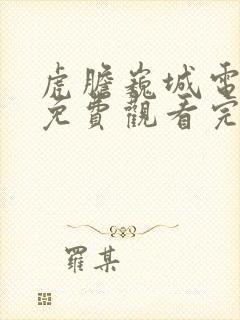 虎膽巍城電
免費觀看完
羅某